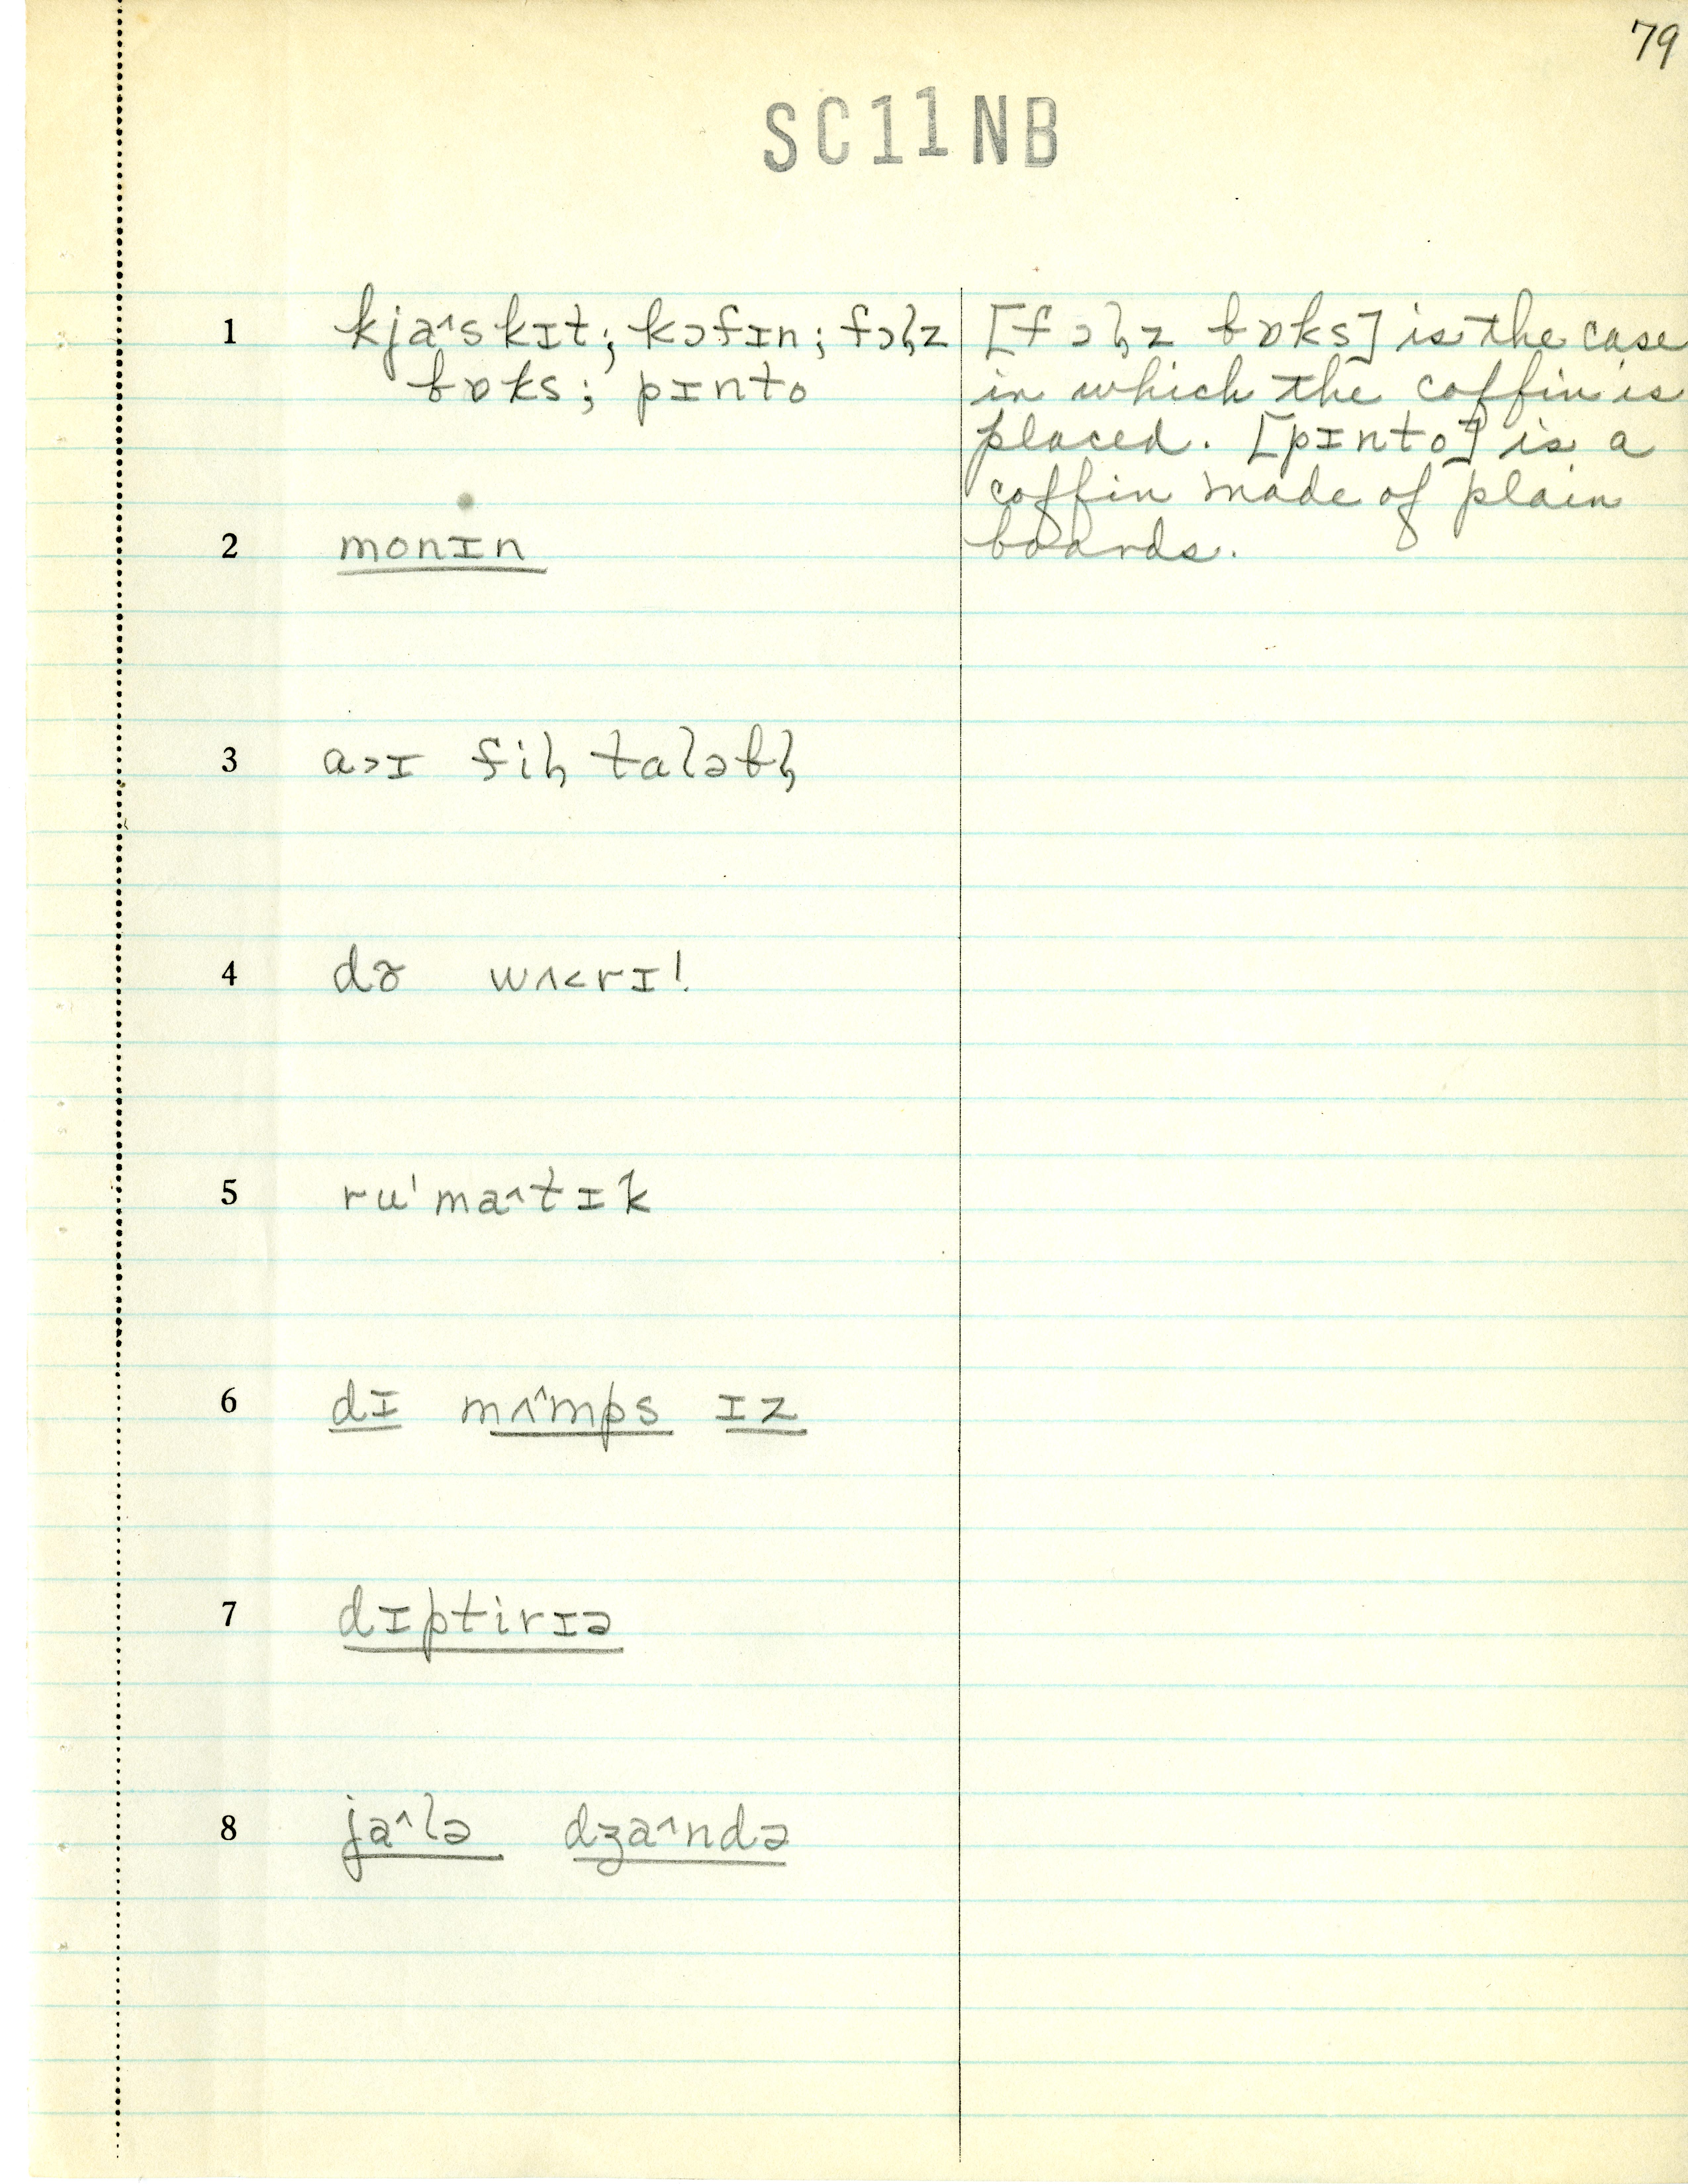 79
SC11NB
1 kja^skɪt; kɔfɪn; fɔl̩z
bɒks; pɪnto
[fɔl̩z bɒks] is the case
in which the coffin is
placed. [pɪnto] is a
coffin made of plain
boards.
2 monɪn
3 a>ɪ fil̩ taləbl̩
4 wʌ<rɪ!
5 ru'ma^tɪk
6 dɪ mʌ^mps ɪz
7 dɪptirɪə
8 ja^lə dʒa^ndə